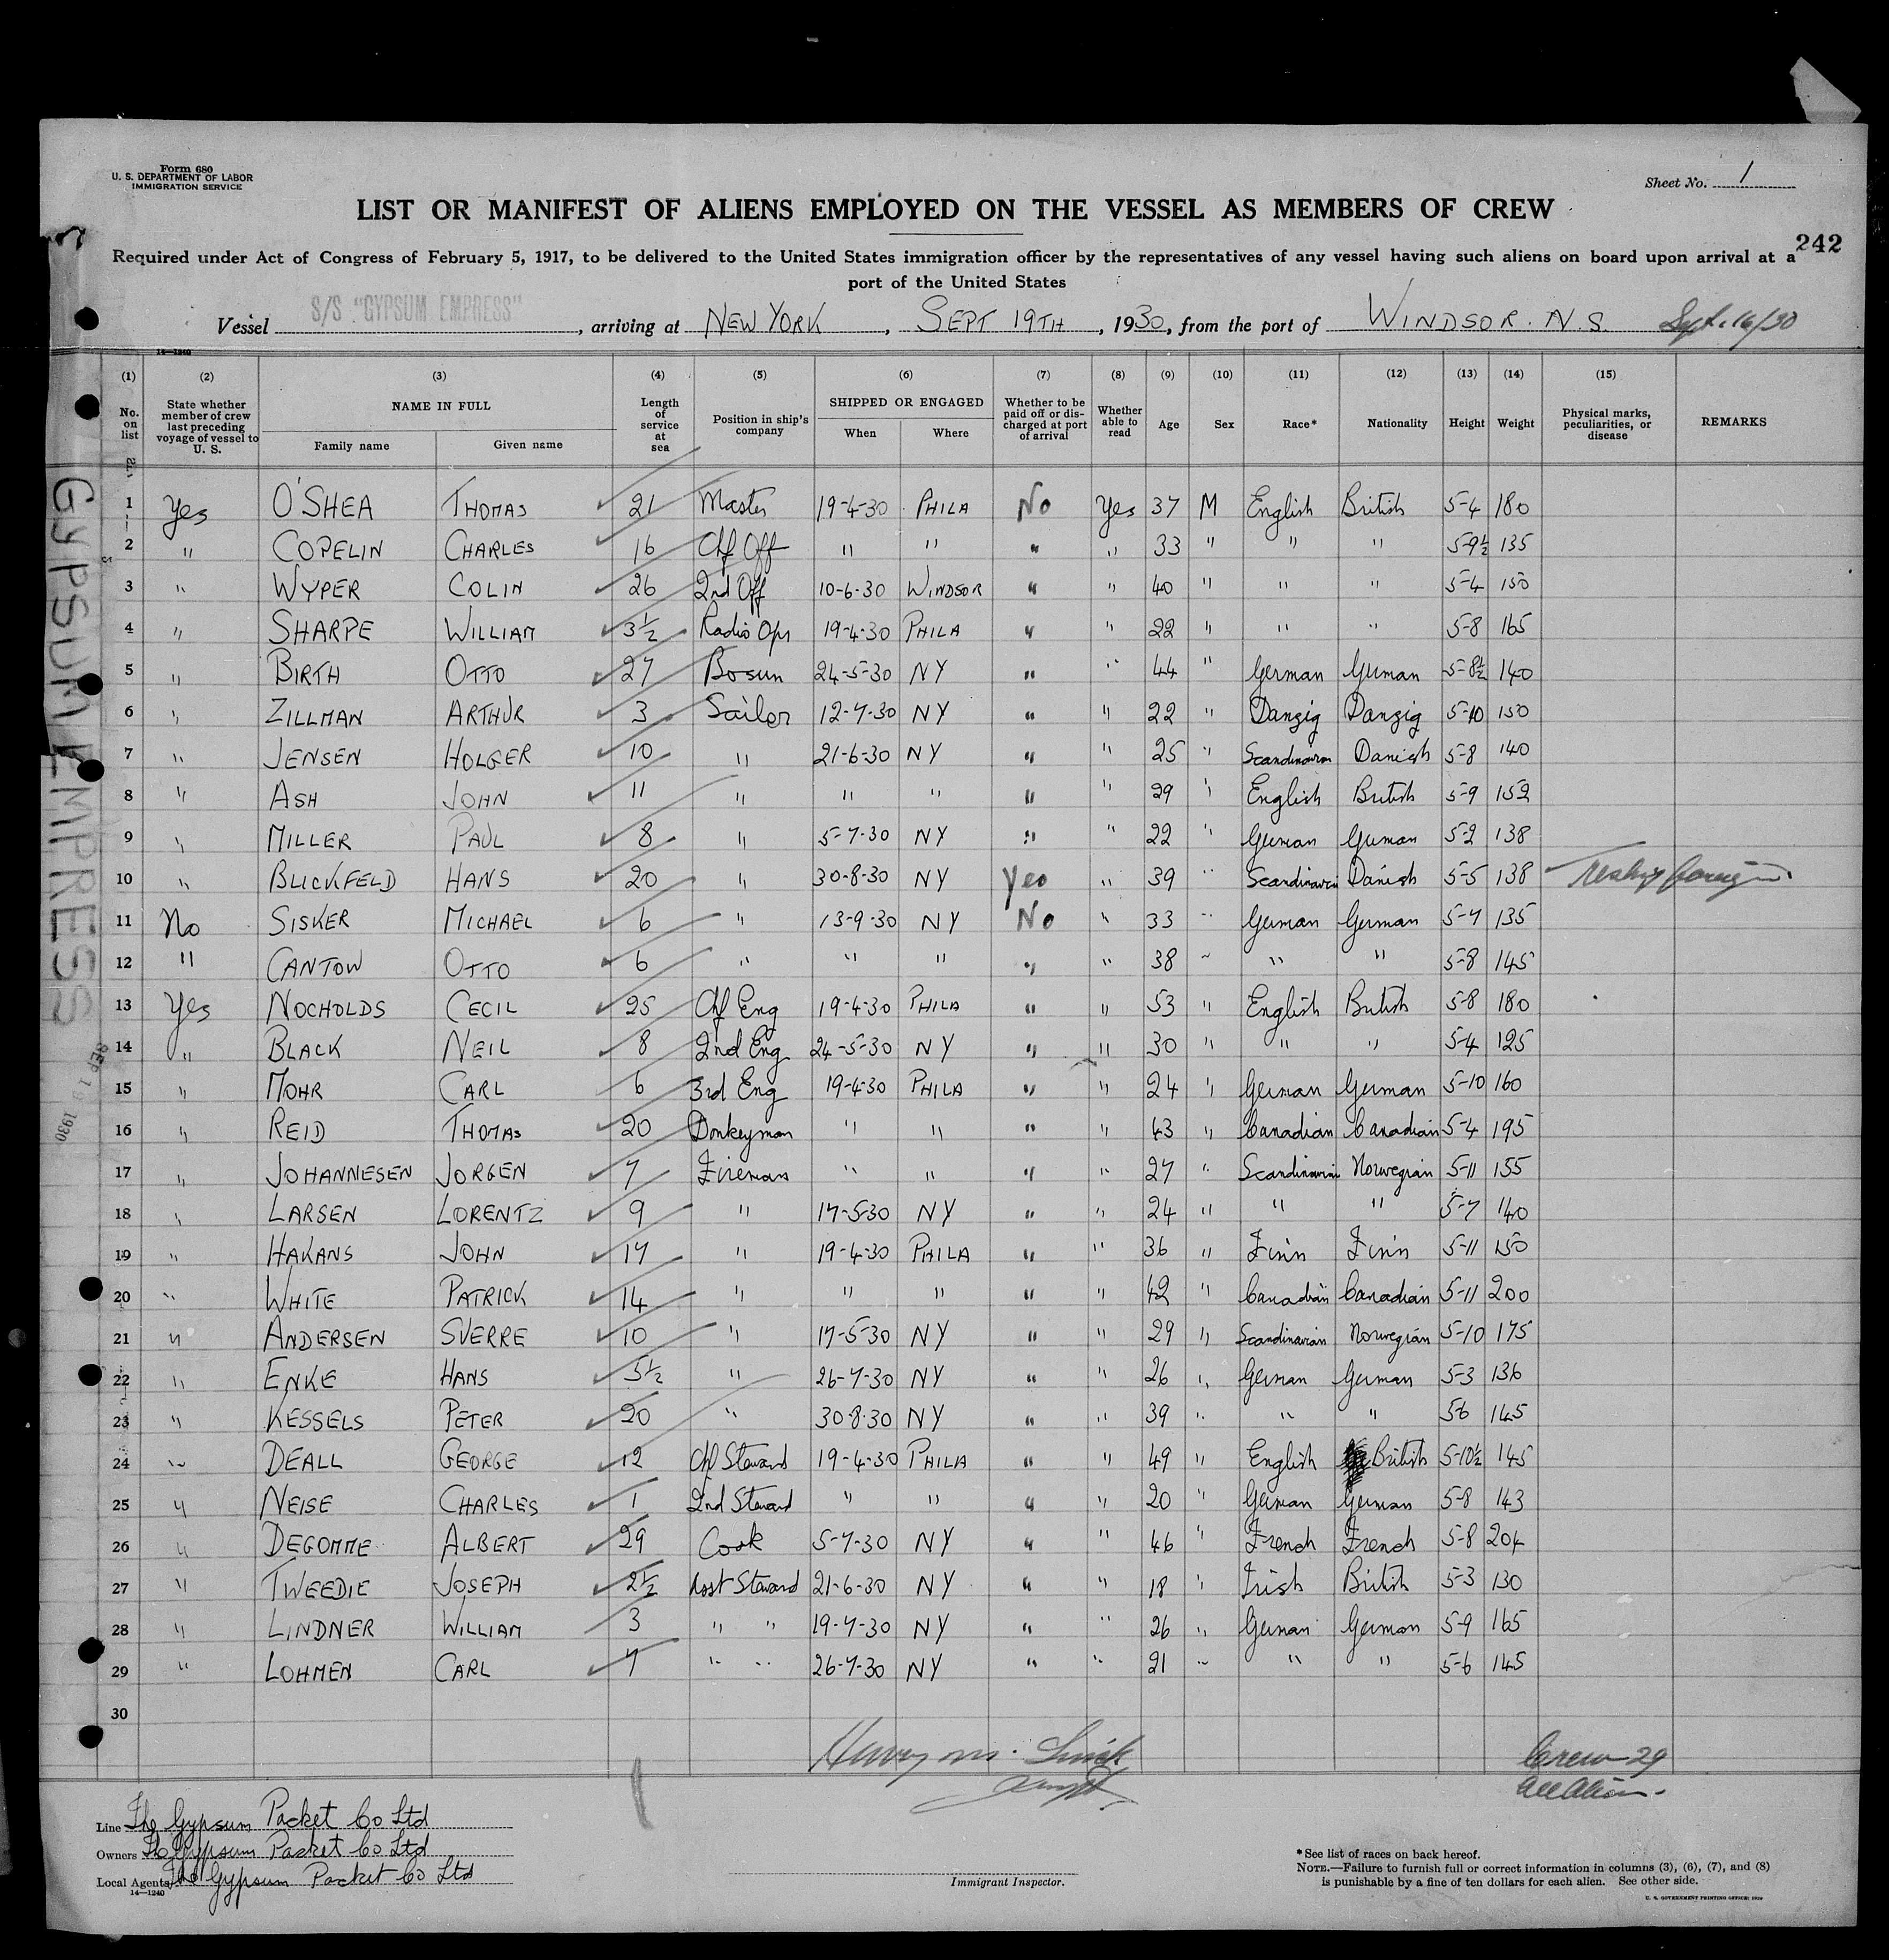 Form 680
U. S. DEPARTMENT OF LABOR
IMMIGRATION SERVICE
Sheet No. 1
LIST OR MANIFEST OF ALIENS EMPLOYED ON THE VESSEL AS MEMBERS OF CREW
242
Required under Act of Congress of February 5, 1917, to be delivered to the United States immigration officer by the representatives of any vessel having such aliens on board upon arrival at a
port of the United States
Vessel S/S "GYPSUM EMPRESS", arriving at NEW YORK, SEPT 19TH, 1930, from the port of WINDSOR. N.S. Sept. 16/30
14—1240
(1) (2) (3) (4) (5) (6) (7) (8) (9) (10) (11) (12) (13) (14) (15)
No. on list State whether member of crew last preceding voyage of vessel to U. S. NAME IN FULL Family name Given name Length of service at sea Position in ship's company SHIPPED OR ENGAGED When Where Whether to be paid off or discharged at port of arrival Whether able to read Age Sex Race* Nationality Height Weight Physical marks, peculiarities, or disease REMARKS
1 Yes O'SHEA THOMAS 21 Master 19-4-30 PHILA No Yes 37 M English British 5-4 180
2 " COPELIN CHARLES 16 Chf Off " " " " 33 " " " 5-9½ 135
3 " WYPER COLIN 26 2nd Off 10-6-30 WINDSOR " " 40 " " " 5-4 150
4 " SHARPE WILLIAM 3½ Radio Opr 19-4-30 PHILA " " 22 " " " 5-8 165
5 " BIRTH OTTO 27 Bosun 24-5-30 NY " " 44 " German German 5-8½ 140
6 " ZILLMAN ARTHUR 3 Sailor 12-7-30 NY " " 22 " Danzig Danzig 5-10 150
7 " JENSEN HOLGER 10 " 21-6-30 NY " " 25 " Scandinavian Danish 5-8 140
8 " ASH JOHN 11 " " " " " 29 " English British 5-9 152
9 " MILLER PAUL 8 " 5-7-30 NY " " 22 " German German 5-2 138
10 " BLICKFELD HANS 20 " 30-8-30 NY Yes " 39 " Scandinavian Danish 5-5 138
11 No SISKER MICHAEL 6 " 13-9-30 NY No " 33 " German German 5-7 135
12 " CANTOW OTTO 6 " " " " " 38 " " " 5-8 145
13 Yes NOCHOLDS CECIL 25 Chf Eng 19-4-30 PHILA " " 53 " English British 5-8 180
14 " BLACK NEIL 8 2nd Eng 24-5-30 NY " " 30 " " " 5-4 125
15 " MOHR CARL 6 3rd Eng 19-4-30 PHILA " " 24 " German German 5-10 160
16 " REID THOMAS 20 Donkeyman " " " " 43 " Canadian Canadian 5-4 195
17 " JOHANNESEN JORGEN 7 Fireman " " " " 27 " Scandinavian Norwegian 5-11 155
18 " LARSEN LORENTZ 9 " 17-5-30 NY " " 24 " " " 5-7 140
19 " HAKANS JOHN 17 " 19-4-30 PHILA " " 36 " Finn Finn 5-11 150
20 " WHITE PATRICK 14 " " " " " 42 " Canadian Canadian 5-11 200
21 " ANDERSEN SVERRE 10 " 17-5-30 NY " " 29 " Scandinavian Norwegian 5-10 175
22 " ENKE HANS 5½ " 26-7-30 NY " " 26 " German German 5-3 136
23 " KESSELS PETER 20 " 30-8-30 NY " " 39 " " " 5-6 145
24 " DEALL GEORGE 12 Chf Steward 19-4-30 PHILA " " 49 " English British 5-10½ 145
25 " NEISE CHARLES 1 2nd Steward " " " " 20 " German German 5-8 143
26 " DEGOMME ALBERT 29 Cook 5-7-30 NY " " 46 " French French 5-8 204
27 " TWEEDIE JOSEPH 2½ Asst Steward 21-6-30 NY " " 18 " Irish British 5-3 130
28 " LINDNER WILLIAM 3 " " 19-7-30 NY " " 26 " German German 5-9 165
29 " LOHMEN CARL 7 " " 26-7-30 NY " " 21 " " " 5-6 145
30
Crew 29
All Alien.
Line The Gypsum Packet Co Ltd
Owners The Gypsum Packet Co Ltd
Local Agents The Gypsum Packet Co Ltd
14—1240
Immigrant Inspector.
*See list of races on back hereof.
NOTE.—Failure to furnish full or correct information in columns (3), (6), (7), and (8)
is punishable by a fine of ten dollars for each alien. See other side.
GYPSUM EMPRESS
SEP 19 1930